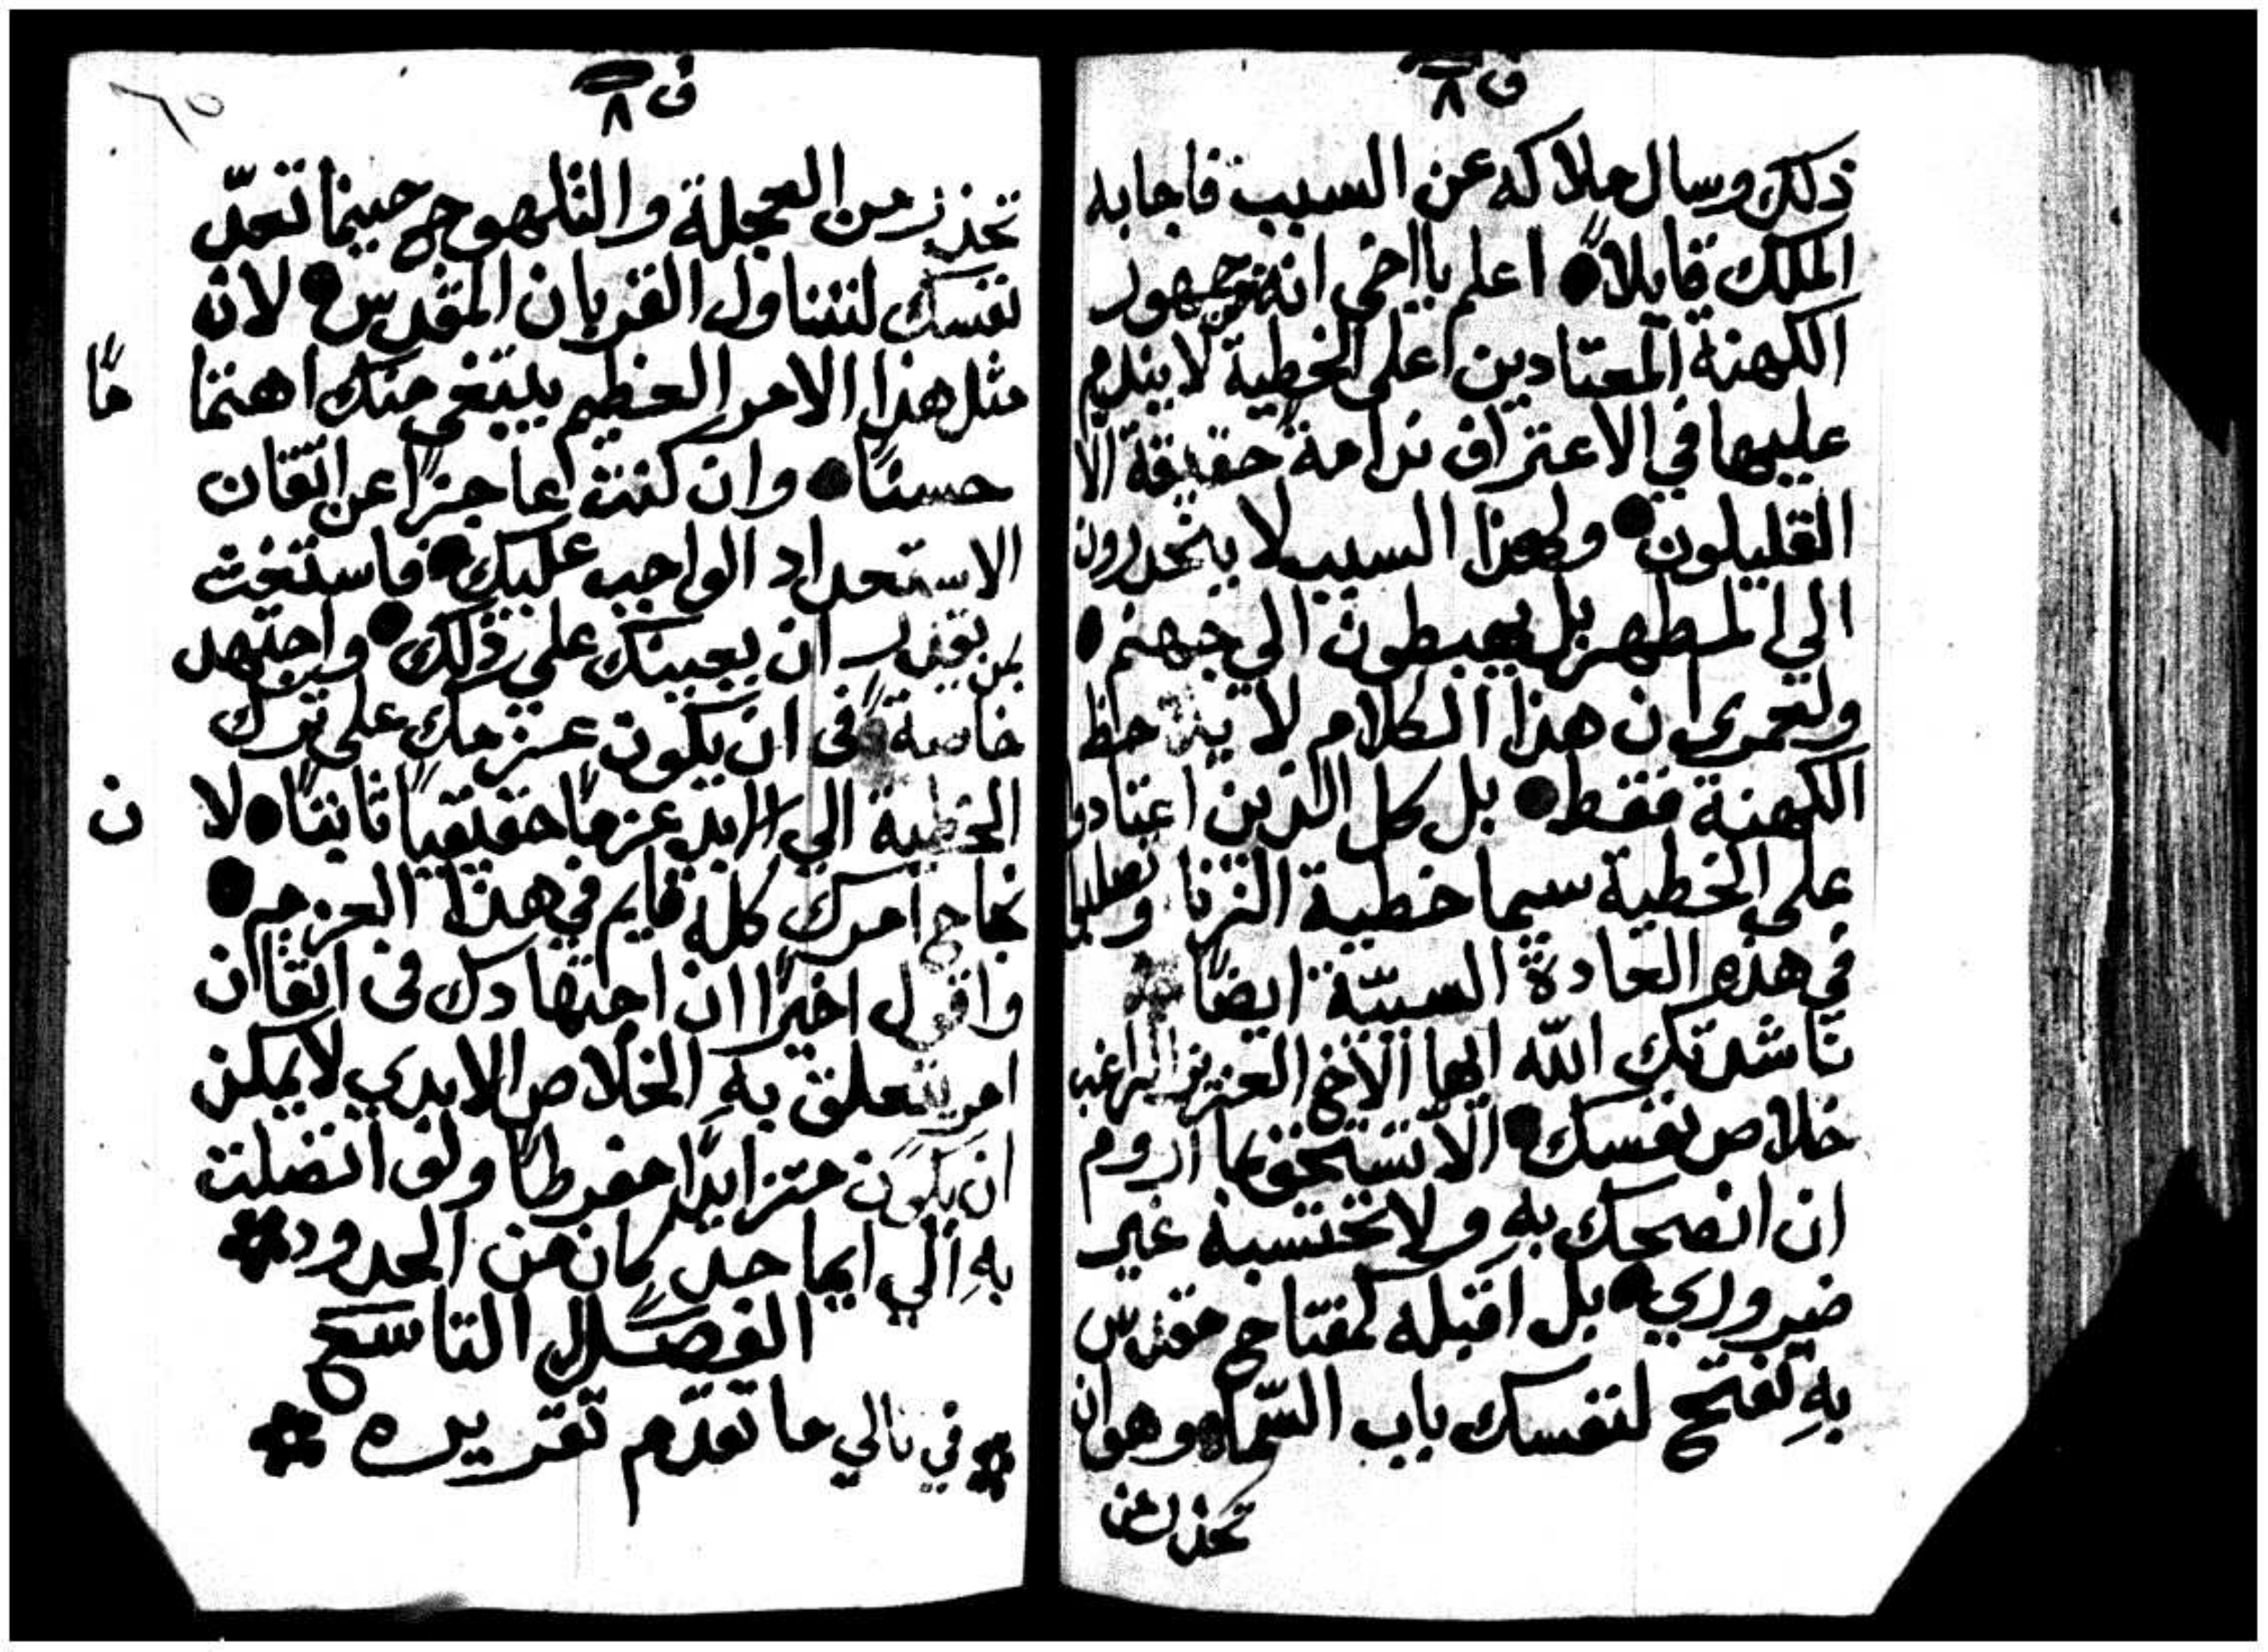 ف ٨
ذلك وسال ملاكه عن السبب فاجابه
الملاك قايلاً اعلم يااخي انه جمهور
الكهنة المعتادين على الخطية لا يندم
عليها في الاعتراف ندامة حقيقة الا
القليلون ولهذا السبب لا ينحدرون
الي المطهر بل يهبطون الي جهنم
ولعمري ان هذا الكلام لا حظ
الكهنة فقط بل كل الذين اعتادوا
على الخطية سيما خطية الزنا
في هذه العادة السيّة ايضًا
ناشدتك اللّه ايها الاخ العزيز الراغب
خلاص نفسك الّا تستخف بما اروم
ان انصحك بهِ ولا تحتسبه غير
ضروري بل اقبله كمفتاح مقدس
بهِ تفتح لنفسك باب السّما وهو ان
تحذر من
ف ٨
٦٥
تحذر من العجلة والتلهوج حينما تعدّ
نفسك لتتناول القربان المقدس لان
مثل هذا الامر العظيم يبتغي منك اهتما
مًا
حسنًا وان كنت عاجزًا عن اتقان
الاستعداد الواجب عليك فاستغث
بمن يقدر ان يعينك علي ذلك واجتهد
خاصةً في ان يكون عزمك على ترك
الخطية الي الابد عزمًا حقيقيًا ثابتًا لا
ن
نجاح امرك كله قايم في هذا العزم
واقول اخيرًا ان اجتهادك في اتقاان
امر يتعلق بهِ الخلاص الابدي لا يمكن
ان يكون متزايدًا مفرطًا ولو اتصلت
بهِ الي ايما حد كان من الحدود
الفصل التاسع
في تالي ما تقدّم تقريره